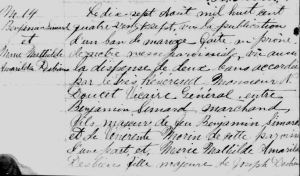 No. 14
Benjamin Simard
et
Marie Mathilde
Amarilda Desbiens
Le dix sept août mil huit cent
quatre vingt sept, vu la publication
d'un ban de mariage faite au prône
de notre messe paroissiale, vu aussi
la dispense de deux bans accordée
par le très Révérend Monsieur N.
Doucet Vicaire Général, entre
Benjamin Simard, marchand
fils majeur de feu Benjamin Simard
et de Morin de cette paroisse
d'une part et, Marie Mathilde Amarilda
Desbiens fille majeure de Joseph Desbiens